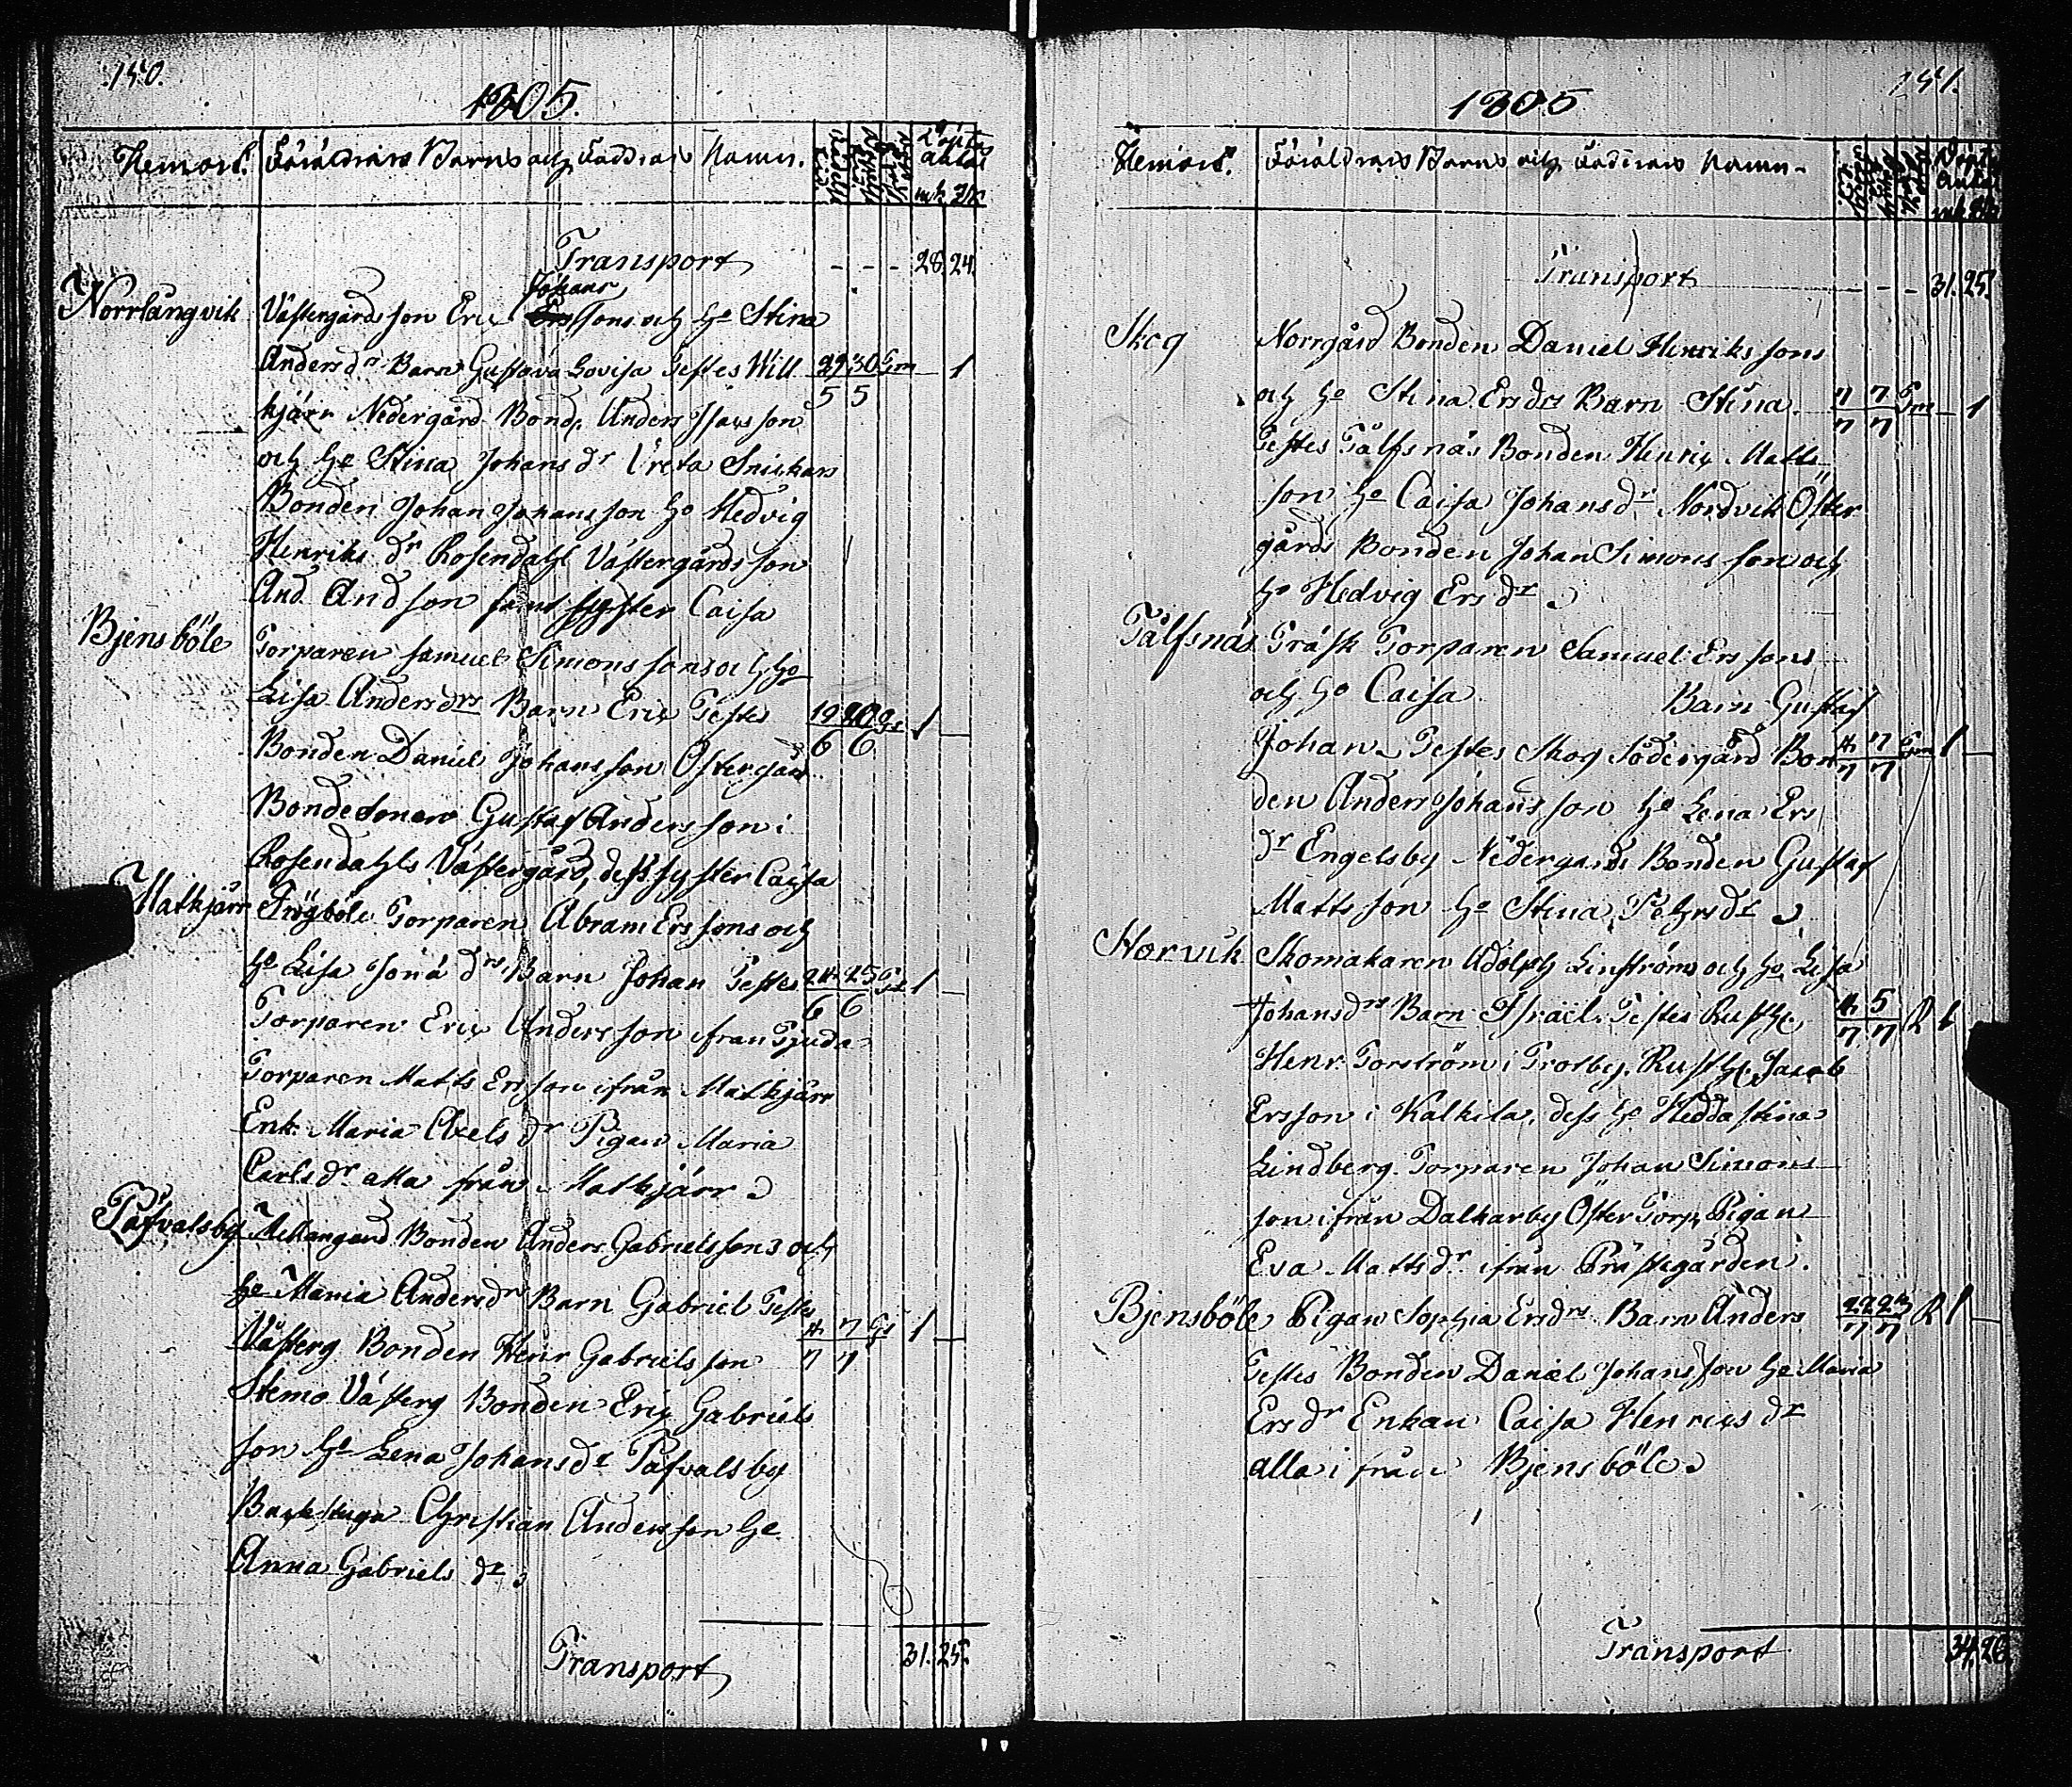 140.
1805.
Hemort. Föräldrars Barns och Faddrars Namn.
Transport - - - 28. 24.
Johans
Norrlångvik Västergårds son Eric sons och Ho Stina
Andersdrs Barn Gustava Lovisa Testes Will 29 30 Gm 1
5 5
kjärr Nedergård Bond. Anders Isacsson
och Ho Stina Johansdr Greta Snickars
Bonden Johan Johansson Ho Hedvig
Henriksdr Rosendahl Västergårds son
And. Andson samt syster Caisa
Bjensböle Torparen Samuel Simonssons och Ho
Lisa Andersdrs Barn Eric Testes 19 20 Gs 1
6 6
Bonden Daniel Johansson Östergård
Bondesonen Gustaf Andersson i
Rosendahls Västergård, dess syster Caisa
Matkjärr Frögböle Torparen Abram Erssons och
Ho Lisa Jonædrs Barn Johan Testes 24 25 Gs 1
6 6
Torparen Eric Andersson ifrån Tjuda
Torparen Matts Ersson ifrån Matkjärr
Enk. Maria Axelsdr Pigan Maria
Carlsdr alla från Matkjärr
Påfvalsby Mellangård Bonden Anders Gabrielssons och
Ho Maria Andersdrs Barn Gabriel Testes
4 7 Gs 1
Västerg Bonden Henr Gabrielsson 7 7
Stemo Västerg Bonden Eric Gabriels
son Ho Lena Johansdr Påfvalsby
Backstugu Christian Andersson Ho
Anna Gabrielsdr
Transport 31. 25.
141.
1805
Hemort. Föräldrars Barns och Faddrars Namn.
Transport - - 31. 25.
Skog Norrgård Bonden Daniel Henrikssons
och Ho Stina Ersdrs Barn Stina 7 7 Gm 1
7 7
Testes Tålfsnäs Bonden Henric Matts
son Ho Caisa Johansdr Nordvik Öster
gårds Bonden Johan Simonsson och
Ho Hedvig Ersdr
Tålfsnäs Träsk Torparen Samuel Erssons
och Ho Caisa Barn Gustaf
Johan Testes Skog Södergård Bon 4 7 Gm 1
7 7
den Anders Johansson Ho Lena Ers
dr Engelsby Nedergårds Bonden Gustaf
Mattsson Ho Stina Pehrsdr
Norvik Skomakaren Adolph Linström och Ho Lisa
Johansdrs Barn Israël Testes Rusth. 4 5 R 1
7 7
Henr. Torström i Trotby. Rusth. Jacob
Ersson i Kalkila, dess Ho Hedda Stina
Lindberg. Torparen Johan Simons
son ifrån Dalkarby Öster Torp, Pigan
Eva Mattsdr ifrån Prästegården.
Bjensböle Pigan Sophia Ersdrs Barn Anders 22 23 R 1
7 7
Testes Bonden Daniel Johansson Ho Maria
Ersdr Enkan Caisa Henricsdr
alla ifrån Bjensböle
Transport 34. 26